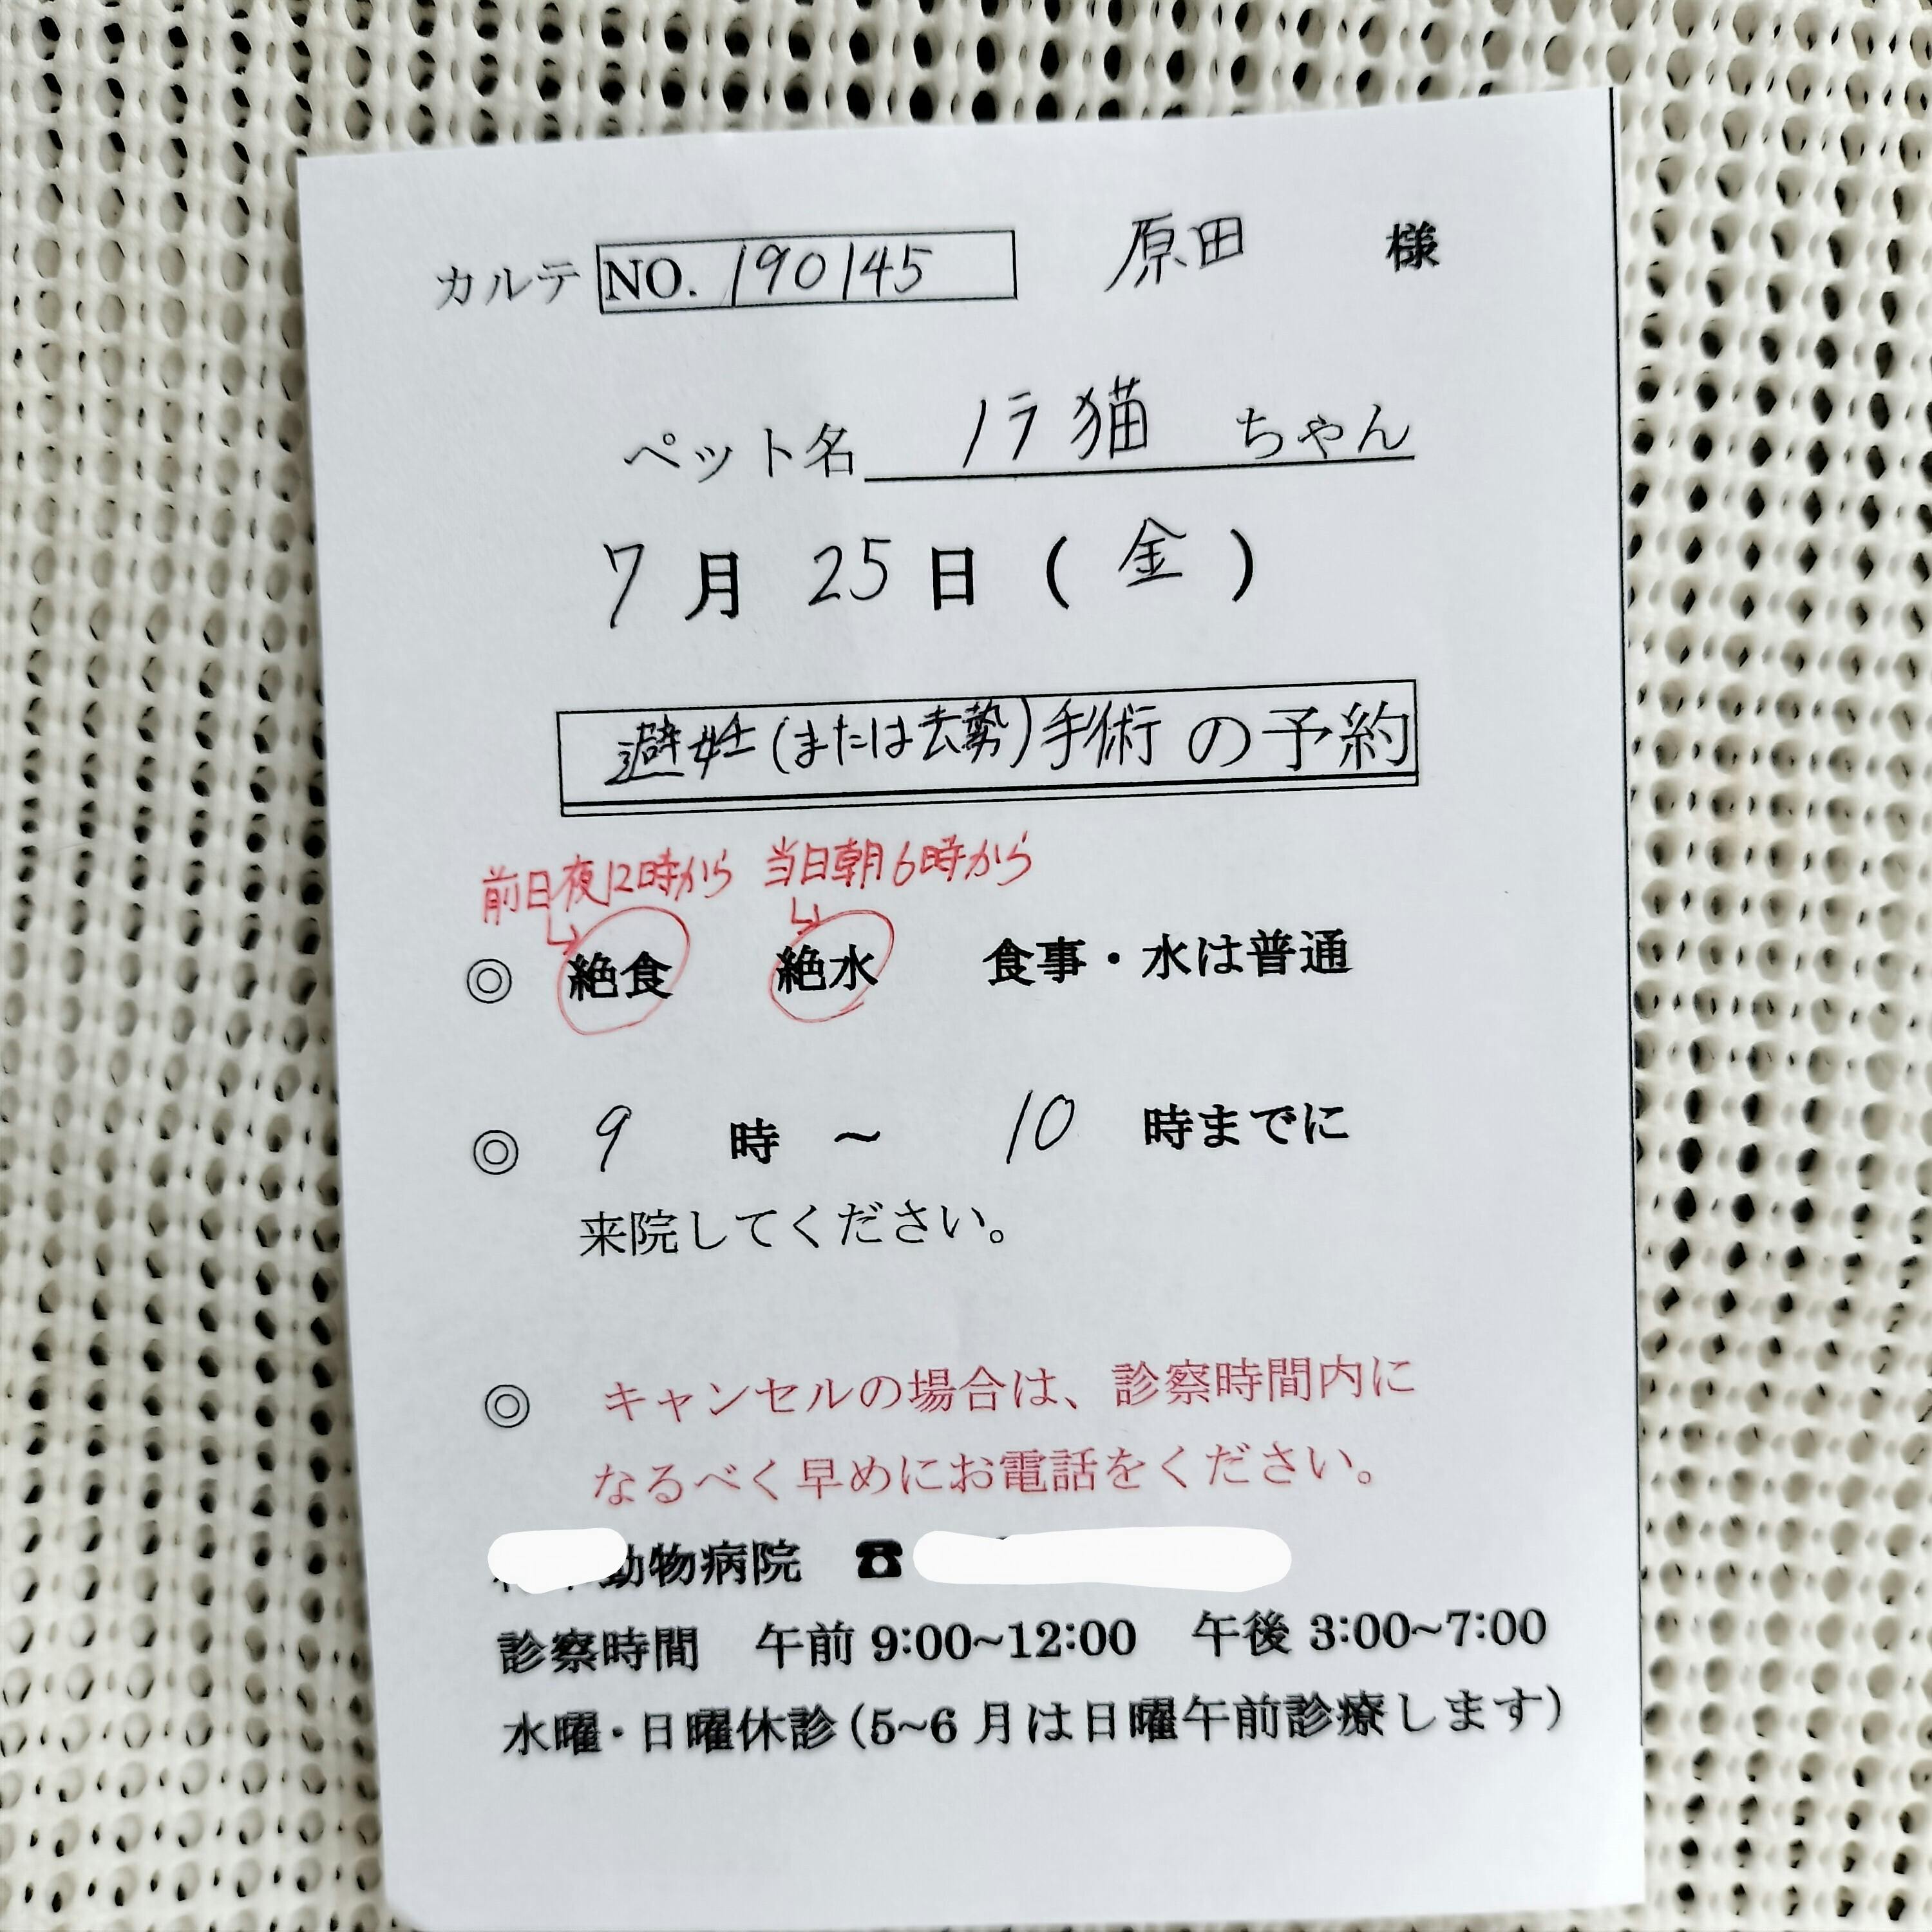 カルテ NO. 190145 原田 様
ペット名 ノラ猫 ちゃん
7 月 25 日 ( 金 )
避妊(または去勢)手術 の予約
前日夜12時から 当日朝6時から
◎ 絶食 絶水 食事・水は普通
◎ 9 時 ～ 10 時までに
来院してください。
◎ キャンセルの場合は、診察時間内に
なるべく早めにお電話をください。
動物病院 ☎
診察時間 午前 9:00~12:00 午後 3:00~7:00
水曜・日曜休診(5~6 月は日曜午前診療します)